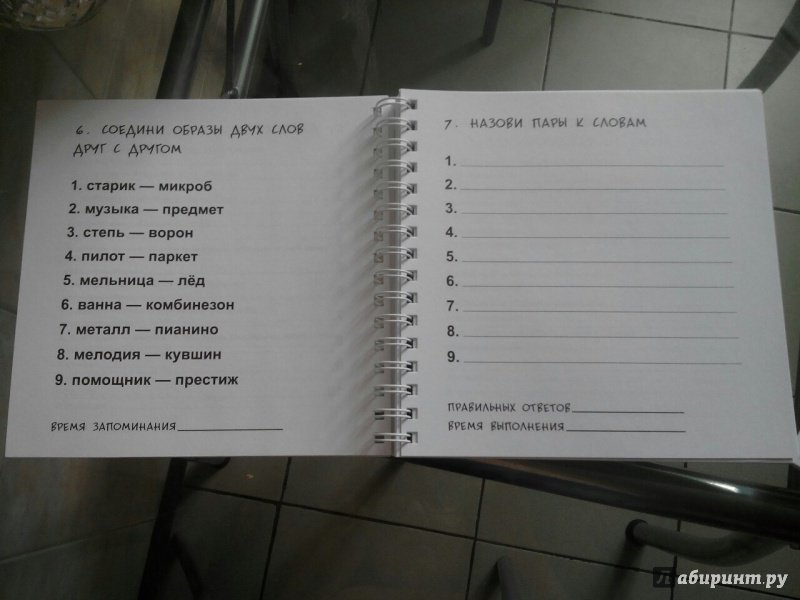 6. СОЕДИНИ ОБРАЗЫ ДВУХ СЛОВ
ДРУГ С ДРУГОМ
1. старик — микроб
2. музыка — предмет
3. степь — ворон
4. пилот — паркет
5. мельница — лёд
6. ванна — комбинезон
7. металл — пианино
8. мелодия — кувшин
9. помощник — престиж
ВРЕМЯ ЗАПОМИНАНИЯ
7. НАЗОВИ ПАРЫ К СЛОВАМ
1.
2.
3.
4.
5.
6.
7.
8.
9.
ПРАВИЛЬНЫХ ОТВЕТОВ
ВРЕМЯ ВЫПОЛНЕНИЯ
Лабиринт.ру